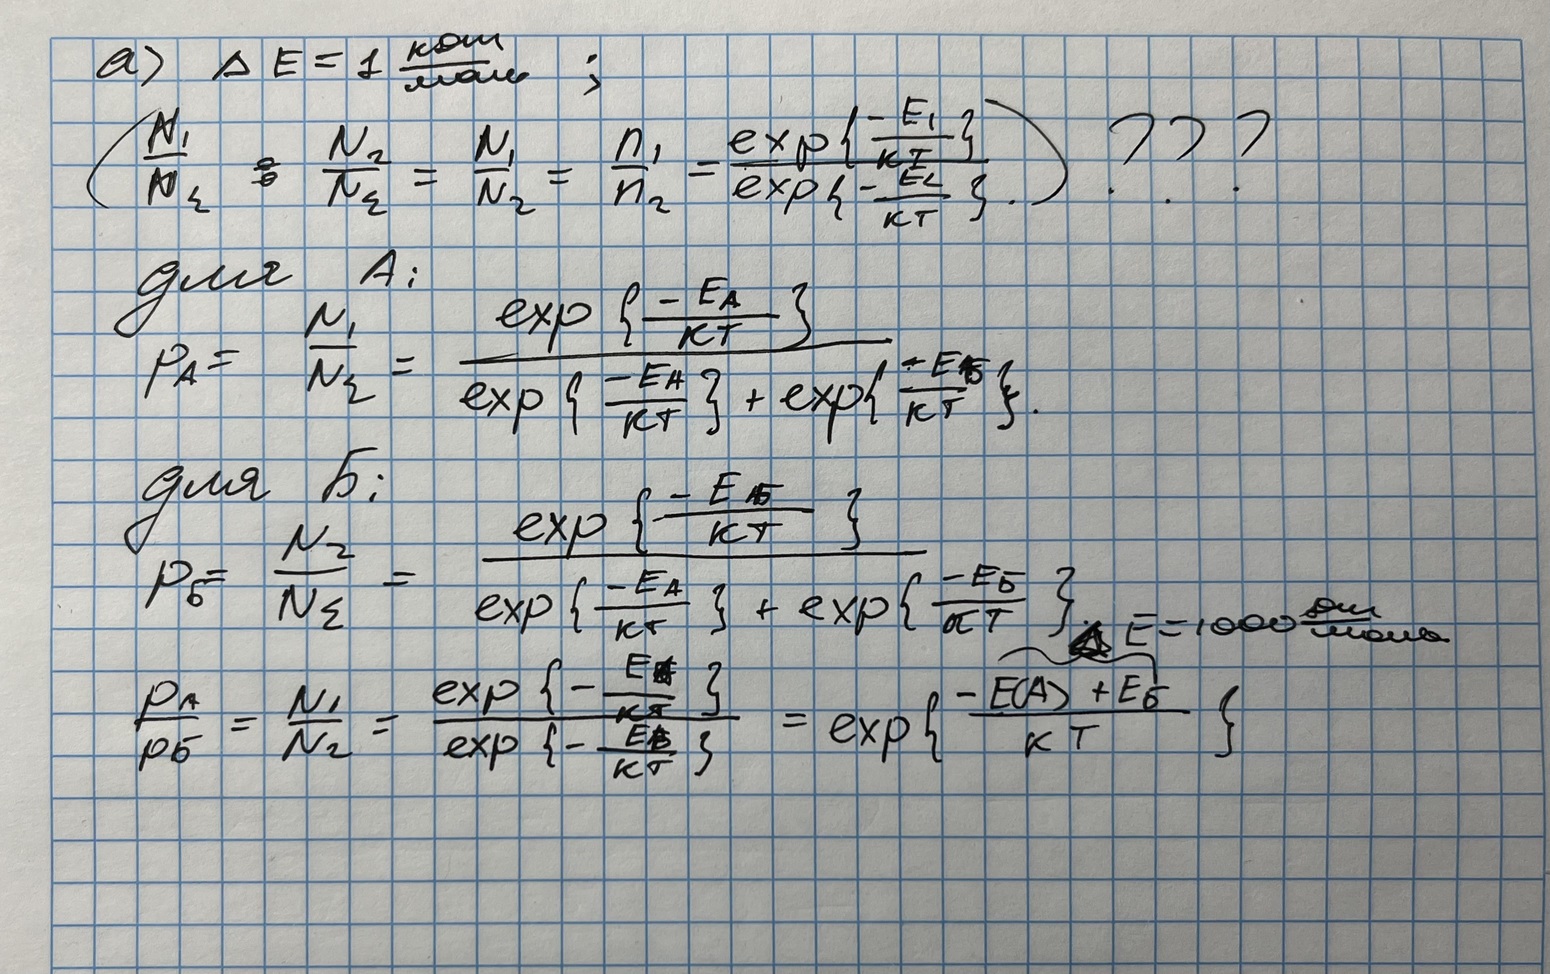 а) Δ E = 1 кДж/моль ;
( N₁/N_Σ : N₂/N_Σ = N₁/N₂ = n₁/n₂ = exp{-E₁/кТ} / exp{-E₂/кТ} . ) ? ? ?
для А:
p_А = N₁/N_Σ = exp{-E_А/кТ} / exp{-E_А/кТ} + exp{-E_Б/кТ}.
для Б:
p_Б = N₂/N_Σ = exp{-E_Б/кТ} / exp{-E_А/кТ} + exp{-E_Б/кТ}.
Δ E = 1000 Дж/моль
p_А/p_Б = N₁/N₂ = exp{-E_А/кТ} / exp{-E_Б/кТ} = exp{-E(А) + E_Б/кТ}